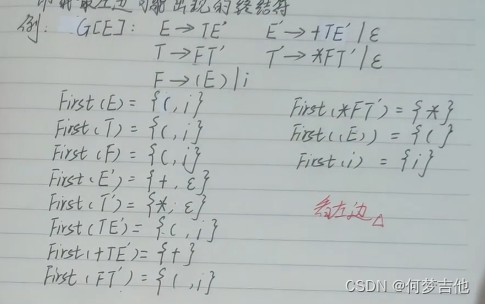 即将最左边可能出现的终结符
例: G[E]: E→TE' E'→+TE'|ε
T→FT' T'→*FT'|ε
F→(E)|i
First(E)={(,i}
First(T)={(,i}
First(F)={(,i}
First(E')={+,ε}
First(T')={*,ε}
First(TE')={(,i}
First(+TE')={+}
First(FT')={(,i}
First(*FT')={*}
First((E))={(}
First(i)={i}
看左边△
CSDN @何梦吉他